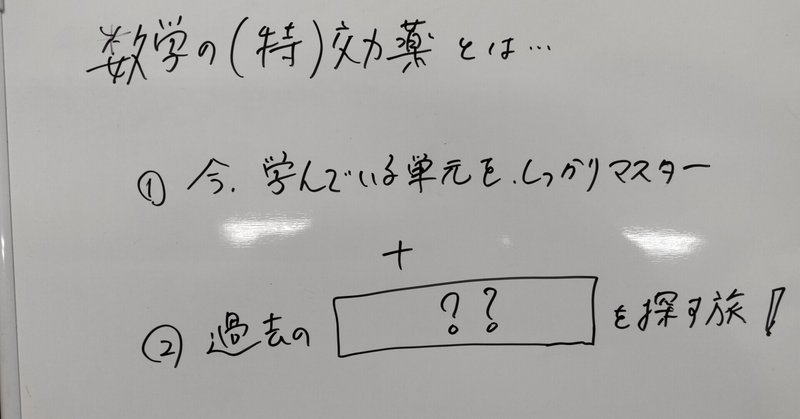 数学の(特)効薬とは…
① 今、学んでいる単元を、しっかりマスター
+
② 過去の ?? を探す旅!